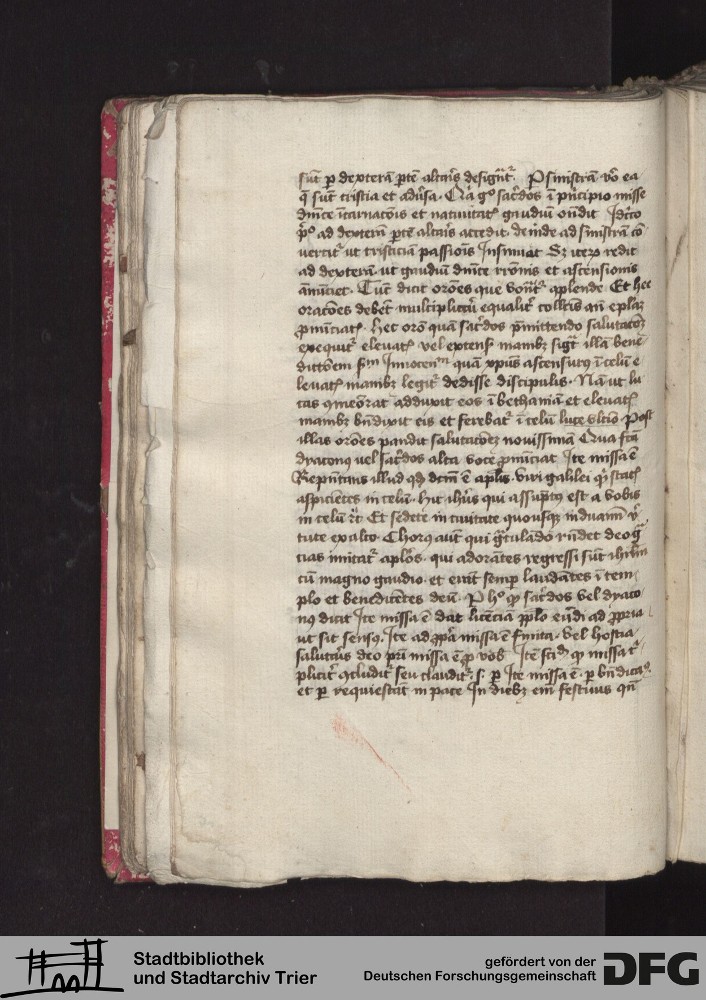 sūt p dexterā ptē altaris designāt². P sinistrā vo ea
q̄ sūt tristia et adūsa. Qia g° sacdos ī pncipio misse
dnīce īcarnacōis et natiuitatꝭ gaudiū ondit Idcō
p° ad dexterā ptē altaris accedit. deīnde ad sinistrā cō
vertit² ut tristiciā passiōis Insinuat Sꝫ iterꝫ redit
ad dexterā ut gaudiū dnīce et ascensionis
ānūciet. Tūc dicit orōes que aplende. Et hec
oracōes debēt multiplicari equalit² collcis an̄ eplaꝫ
pnūciatꝭ. hec orō quā sacdos pmittendo salutacōꝫ
exequit² eleuatꝭ vel extensꝭ manibꝫ sigt illā bene
dictōem Innocen quā xpūs ascensurꝰ ī celū e
leuatꝭ manibꝫ legit² dedisse discipulis. Nā ut lu
cas 9meōrat adduxit eos ī bethaniā et eleuatꝭ
manibꝫ bndixit eis et ferebat² ī celū luce vltīo. Post
illas orōes pandit salutacōeꝫ nouissimā Qua fcā
dyaconꝰ vel sacdos alta voce pnūciat Ite missa ē
Repntans illud qd dcm ē aplis. viri galilei qd statꝭ
aspiciētes in celū. hic ihūs qui assūptꝰ est a vobis
in celū rc̄ Et sedete in ciuitate quousqꝫ induamī v²
tute ex alto. Chorꝰ aut qui gtulādo rn̄det deo g
cias imitat² aplos. qui adorātes regressi sūt ihrlm
cū magno gaudio. et erāt semp laudātes ī tem
plo et benedicētes deū. P h° qd sacdos vel dyaco
nꝰ dicit Ite missa ē dat licēciā pplo eūdi ad ppria
ut sit sensꝰ. Ite ad ppa missa ē finita. vel hostia
salutaris deo pri missa ē p vob Itē scid qd missa t²
plicit² 9cludit² seu claudit². s. p Ite missa ē. p bndicaꝰ
et p requiescāt in pace In diebꝫ em festiuis qn̄
Stadtbibliothek
und Stadtarchiv Trier
gefördert von der
Deutschen Forschungsgemeinschaft
DFG